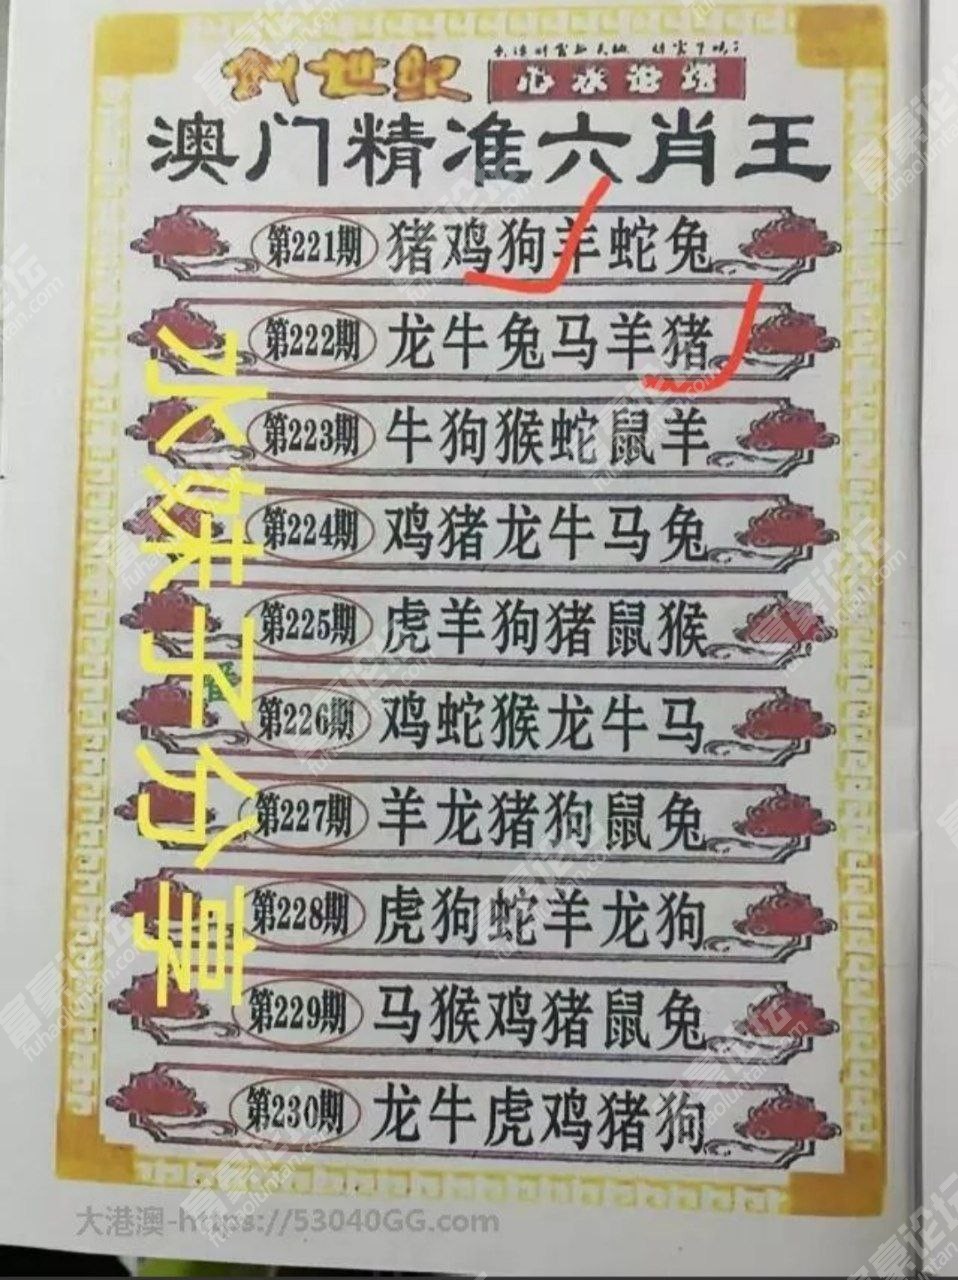 创世纪
心水论坛
澳门精准六肖王
第221期 猪鸡狗羊蛇兔
第222期 龙牛兔马羊猪
第223期 牛狗猴蛇鼠羊
第224期 鸡猪龙牛马兔
第225期 虎羊狗猪鼠猴
第226期 鸡蛇猴龙牛马
第227期 羊龙猪狗鼠兔
第228期 虎狗蛇羊龙狗
第229期 马猴鸡猪鼠兔
第230期 龙牛虎鸡猪狗
水妹子分享
大港澳-https://53040GG.com
富豪论坛
fuhaoluntan.com